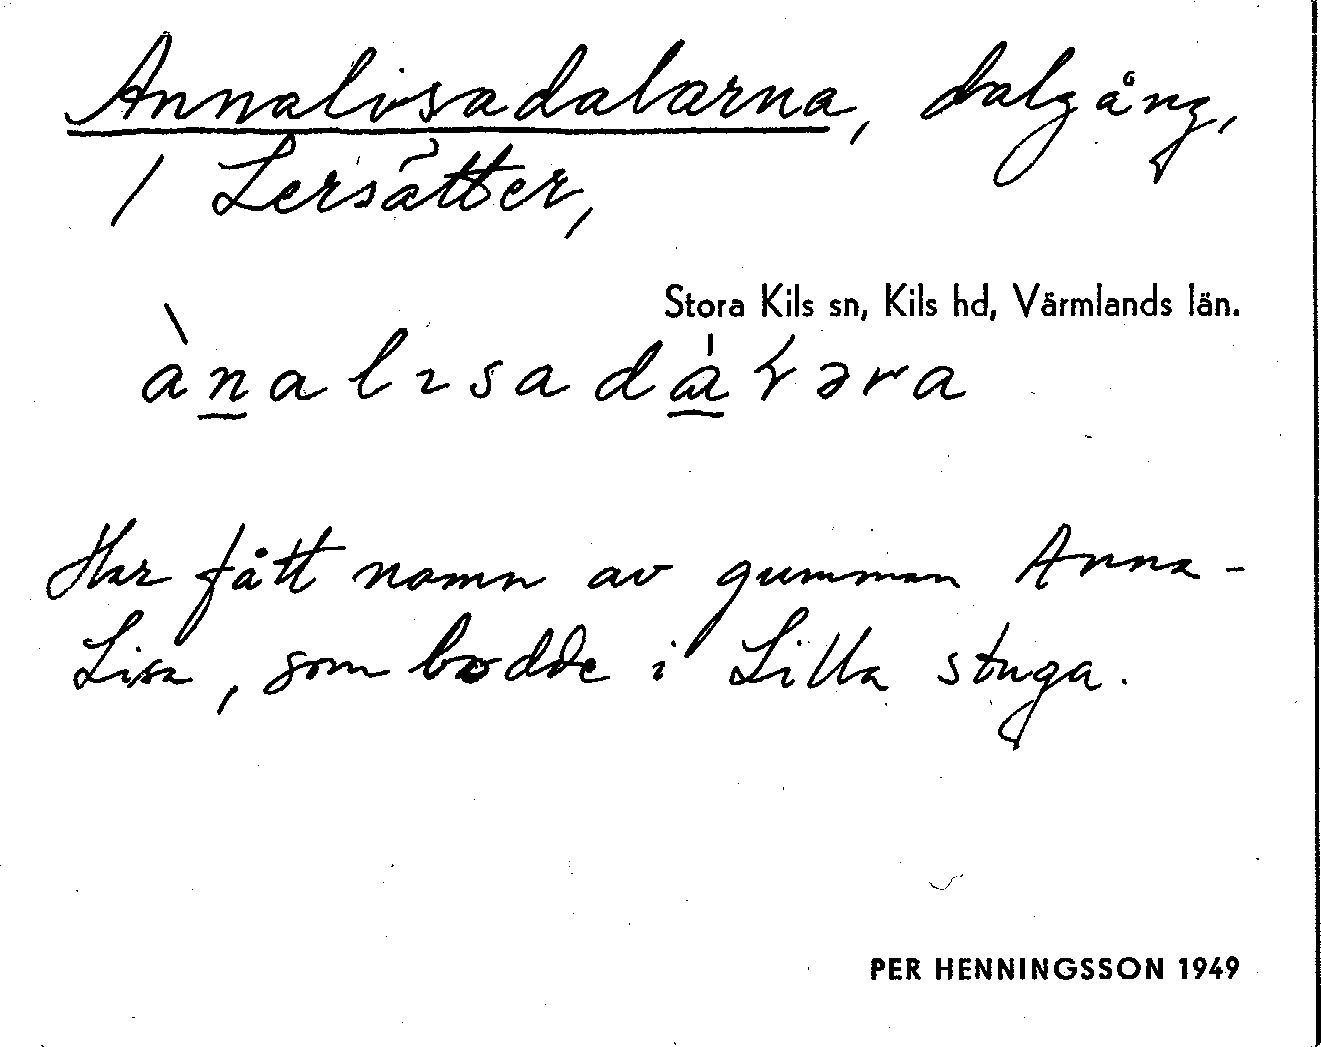 Annalisadalarna, dalgång,
/ Lersätter,
Stora Kils sn, Kils hd, Värmlands län.
ànalısadáɽəra
Har fått namn av gumman Anna-
Lisa, som bodde i Lilla stuga.
PER HENNINGSSON 1949